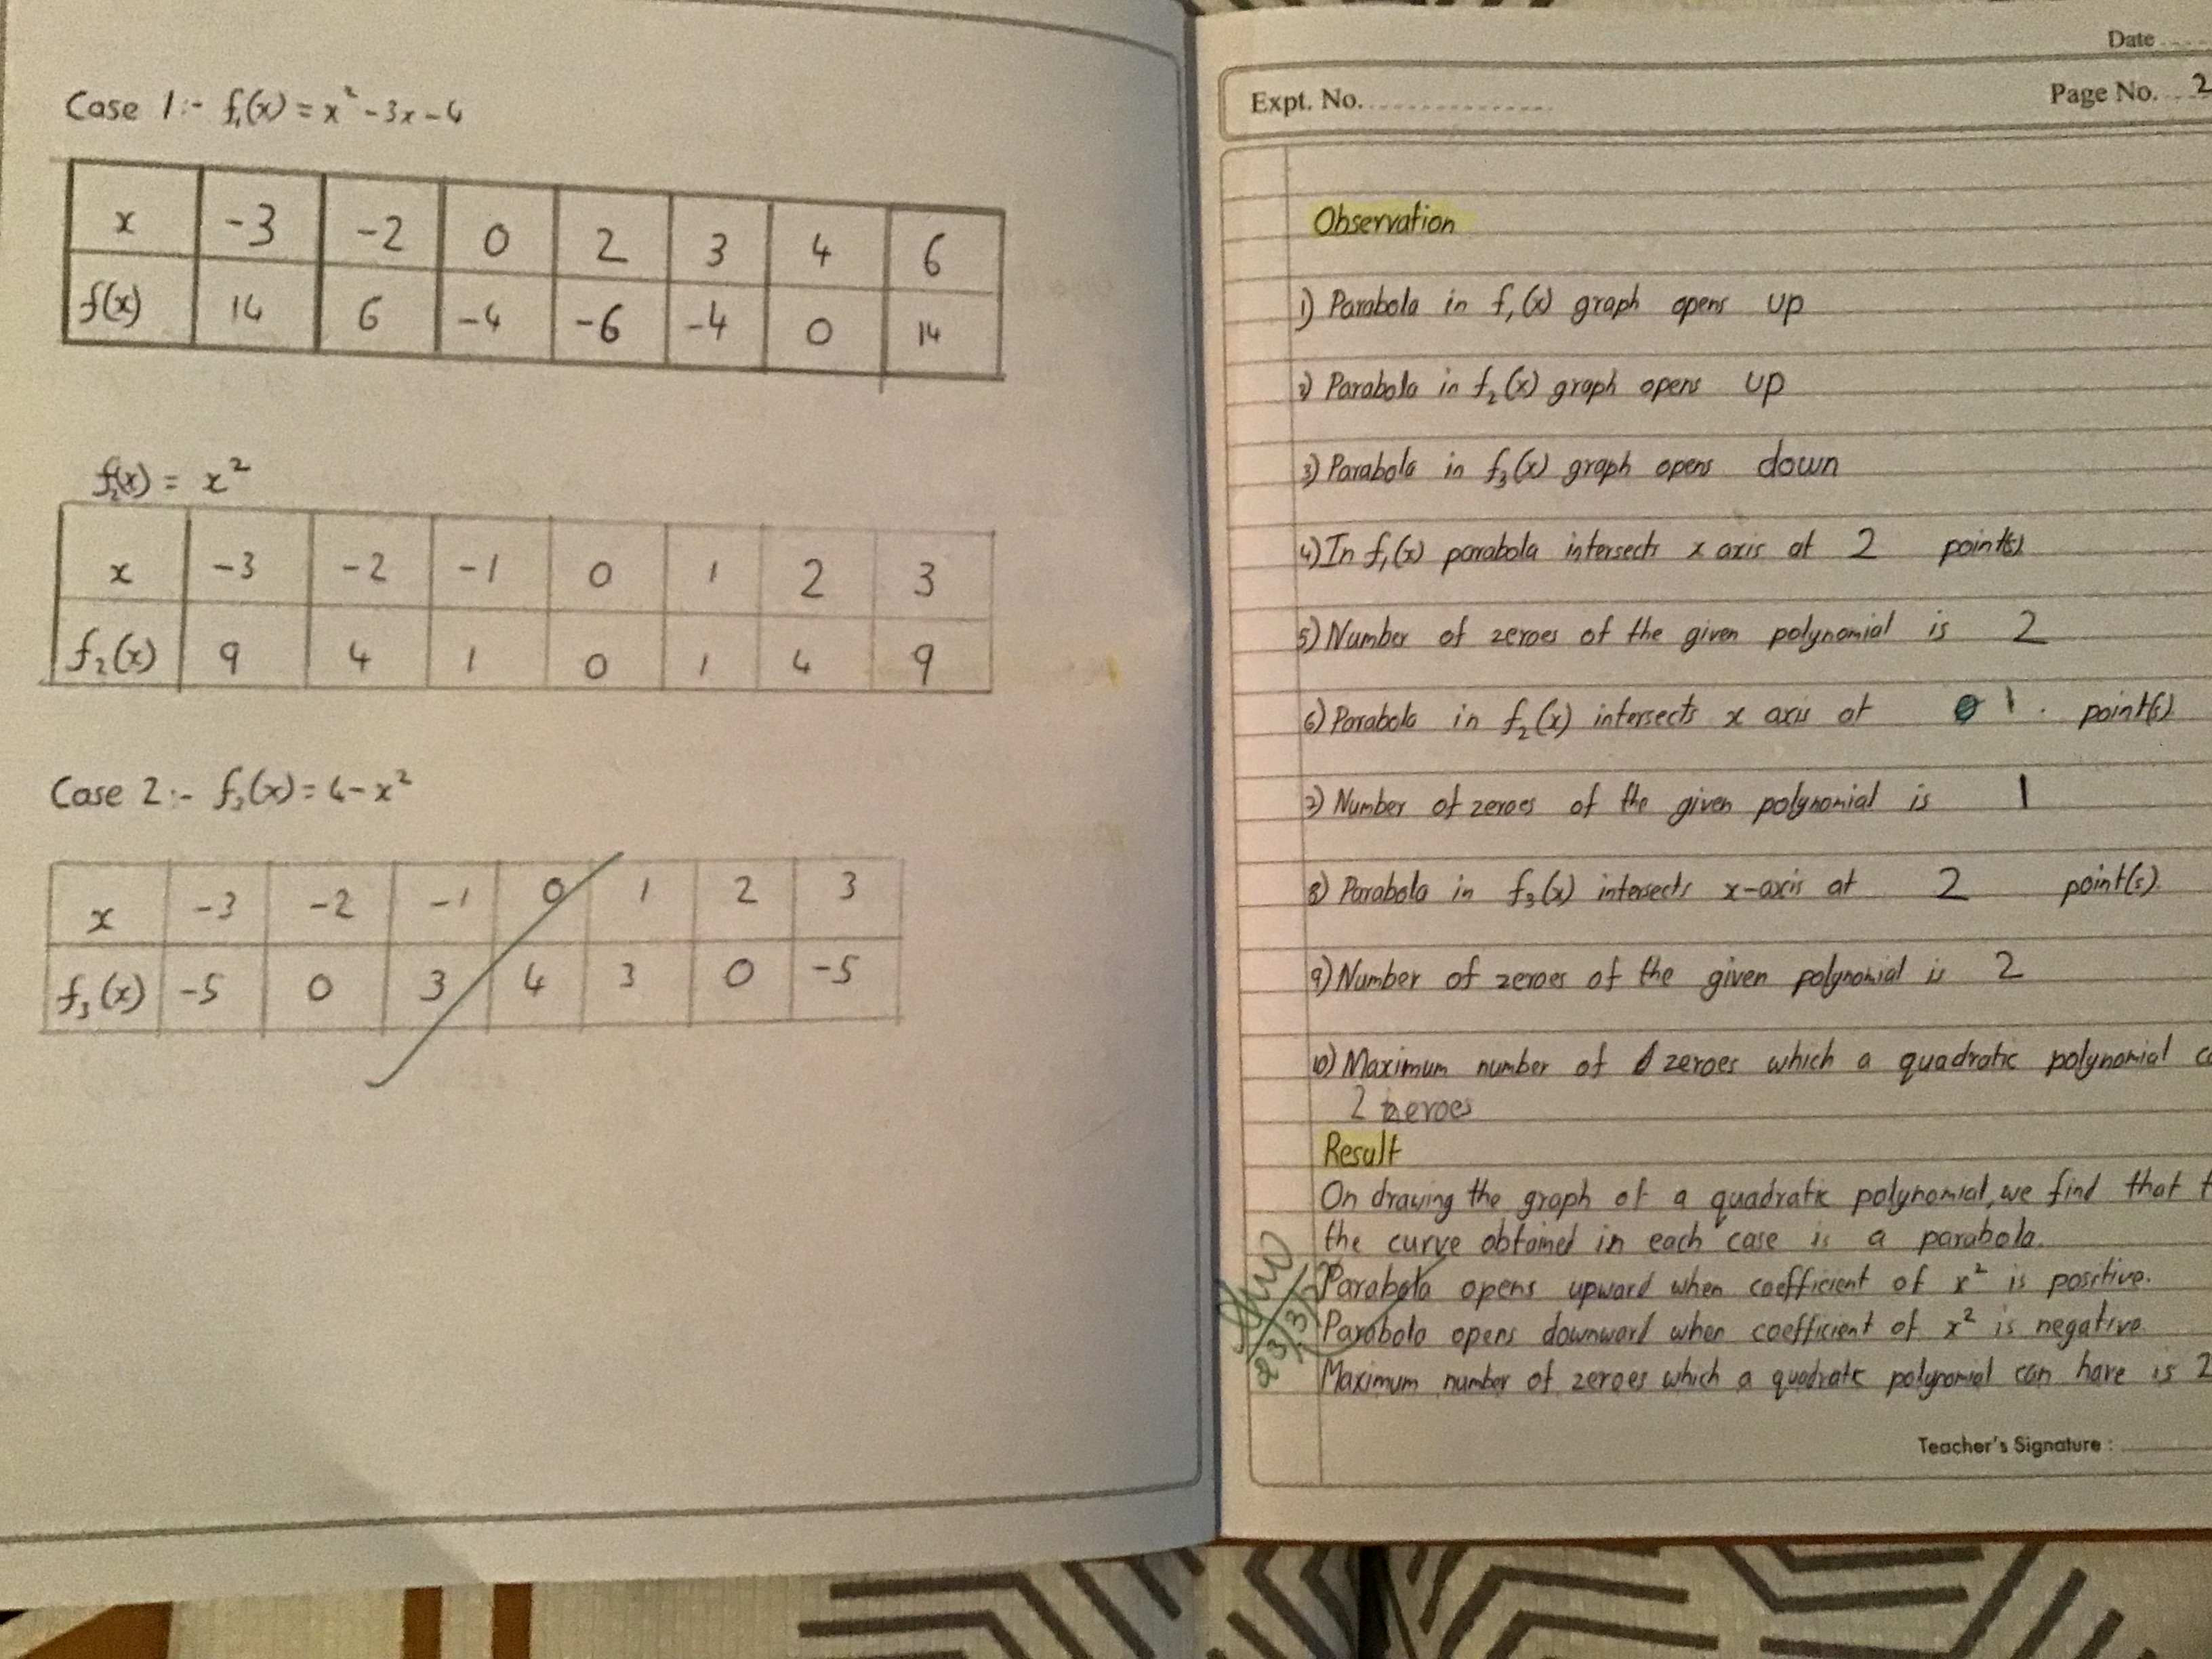 Case 1:- f₁(x) = x² - 3x - 4
x -3 -2 0 2 3 4 6
f(x) 14 6 -4 -6 -4 0 14
f₂(x) = x²
x -3 -2 -1 0 1 2 3
f₂(x) 9 4 1 0 1 4 9
Case 2:- f₃(x) = 4 - x²
x -3 -2 -1 0 1 2 3
f₃(x) -5 0 3 4 3 0 -5
Date
Expt. No. Page No. 2
Observation
1) Parabola in f₁(x) graph opens up
2) Parabola in f₂(x) graph opens up
3) Parabola in f₃(x) graph opens down
4) In f₁(x) parabola intersects x axis at 2 point(s)
5) Number of zeroes of the given polynomial is 2
6) Parabola in f₂(x) intersects x axis at 1 point(s)
7) Number of zeroes of the given polynomial is 1
8) Parabola in f₃(x) intersects x-axis at 2 point(s).
9) Number of zeroes of the given polynomial is 2
10) Maximum number of zeroes which a quadratic polynomial
2 zeroes
Result
On drawing the graph of a quadratic polynomial, we find that
the curve obtained in each case is a parabola.
Parabola opens upward when coefficient of x² is positive.
Parabola opens downward when coefficient of x² is negative.
Maximum number of zeroes which a quadratic polynomial can have is 2
23/3/
Teacher's Signature :